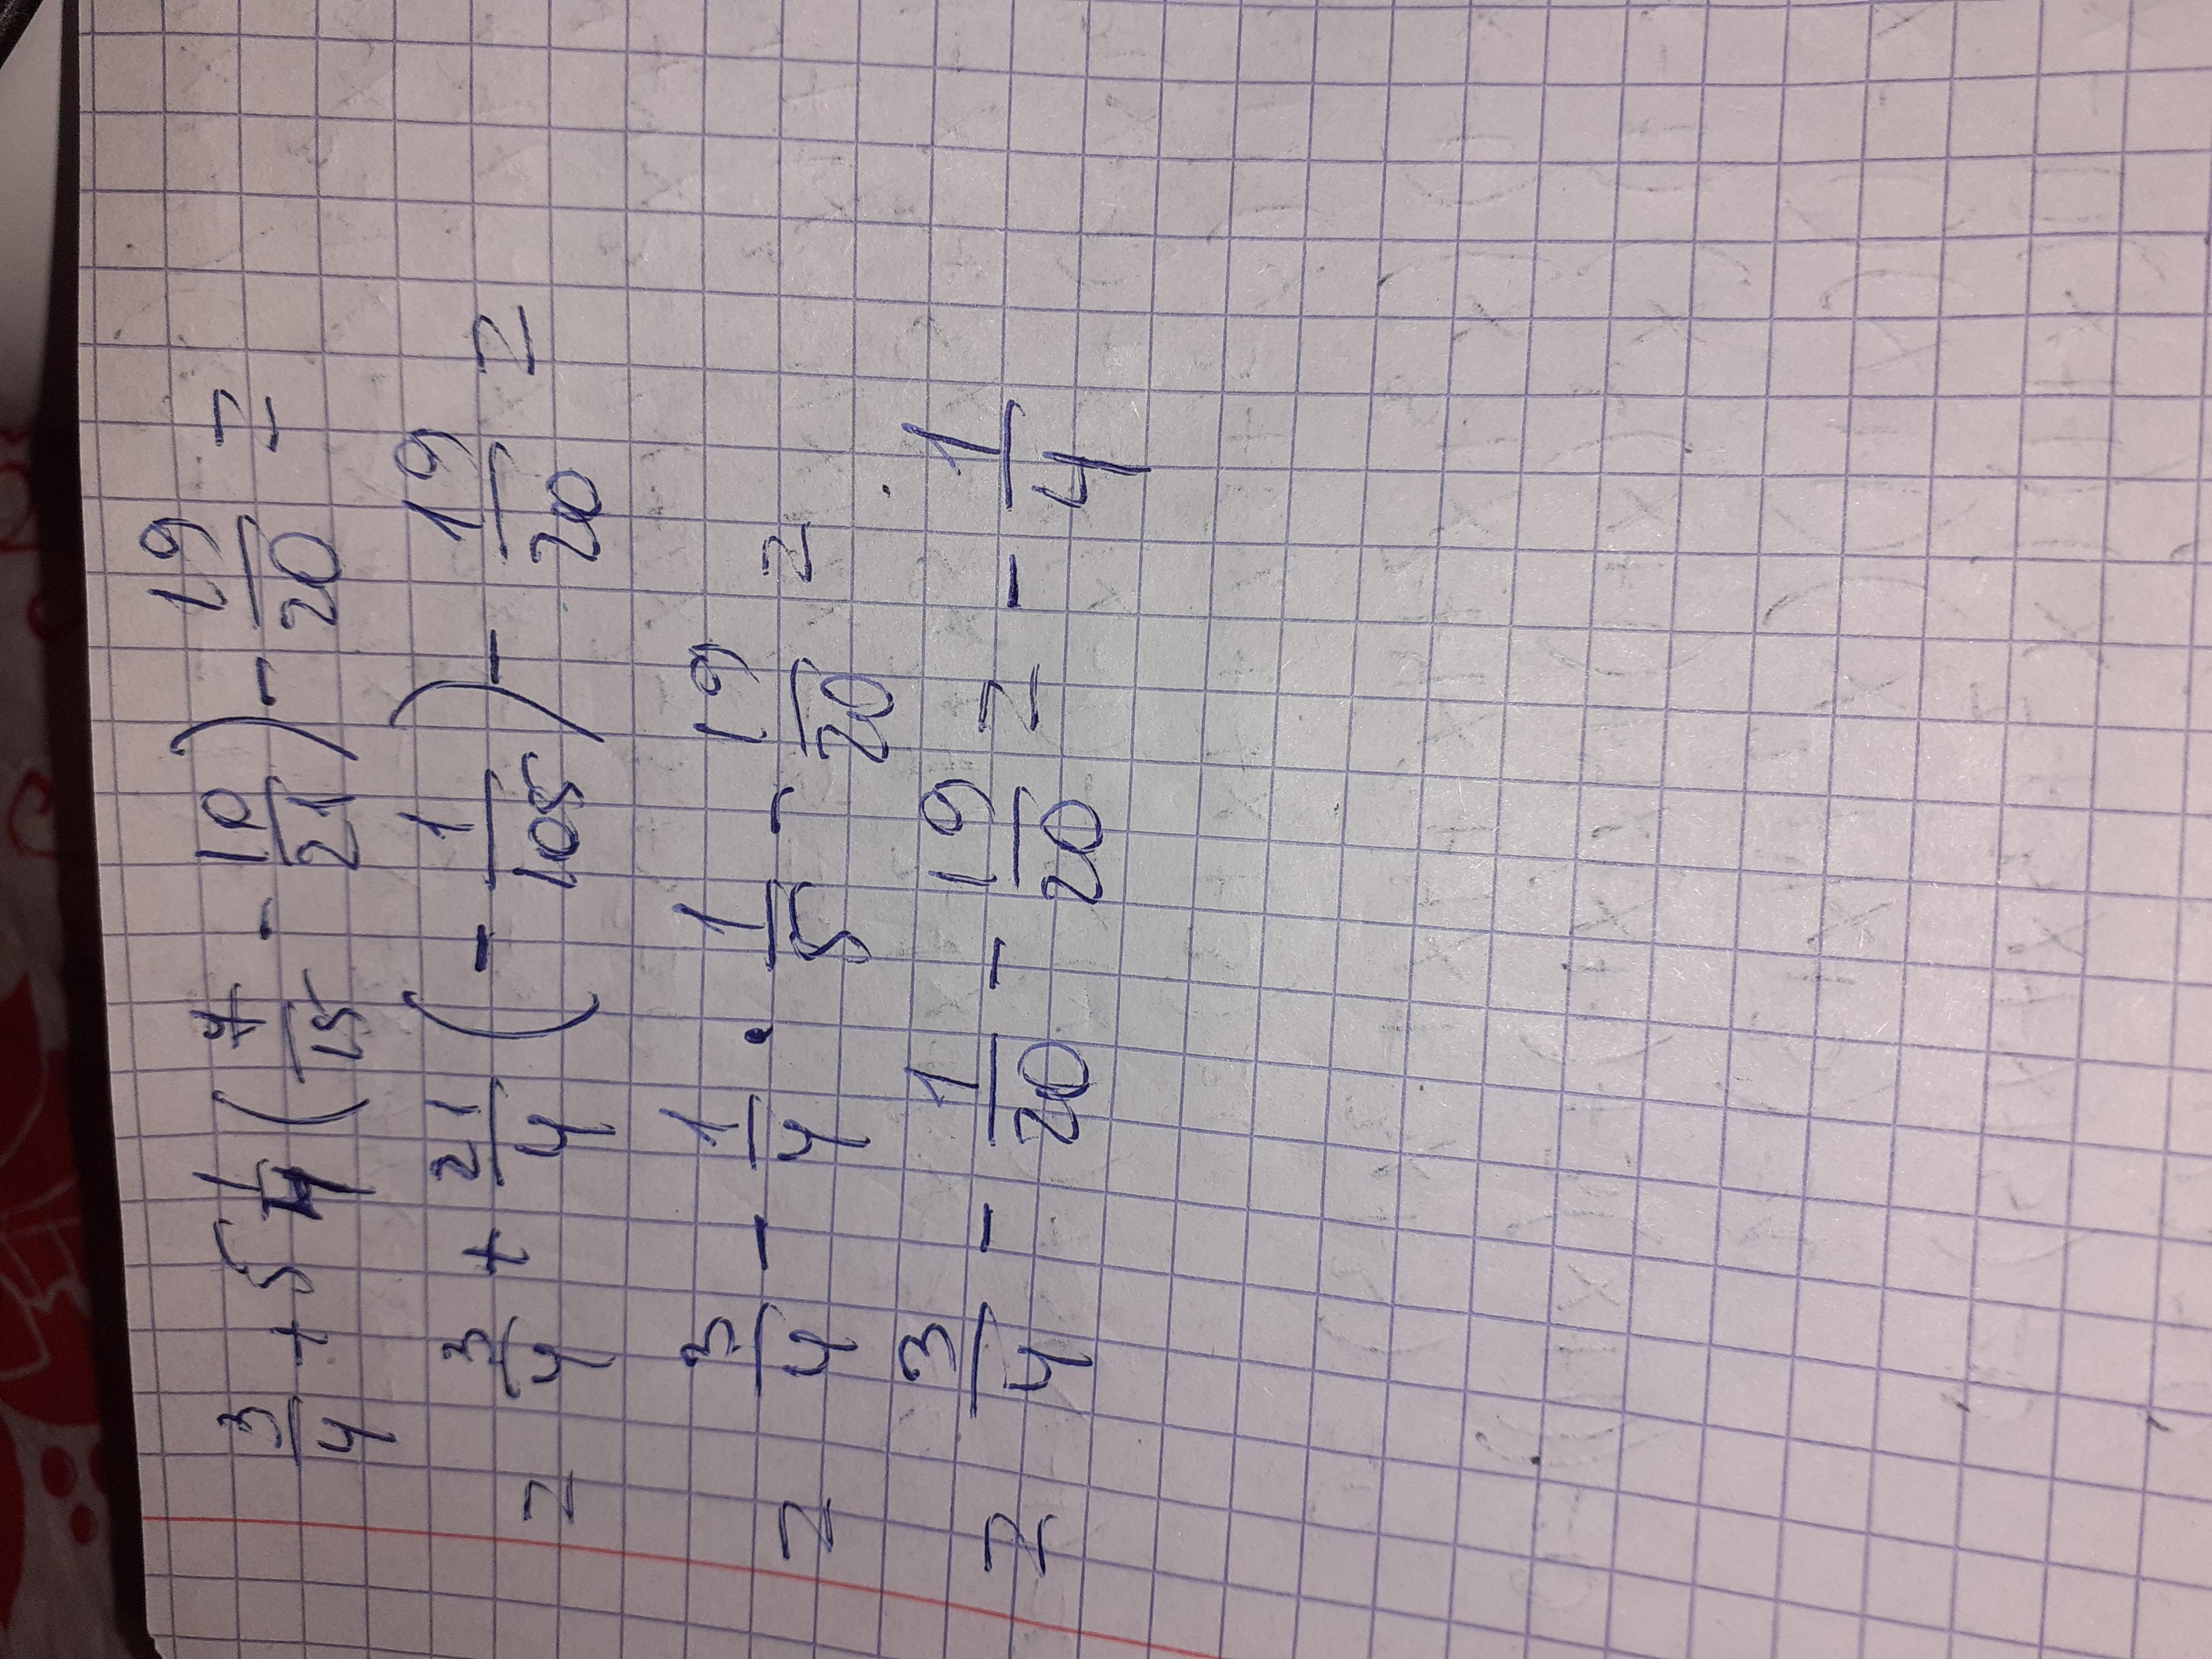 3/4 + 5 1/4 (7/15 - 10/21) - 19/20 =
= 3/4 + 21/4 (- 1/105) - 19/20 =
= 3/4 - 1/4 · 1/5 - 19/20 =
= 3/4 - 1/20 - 19/20 = - 1/4